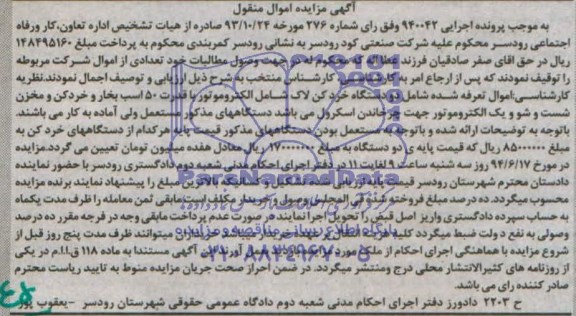 آگهی مزایده اموال منقول
به موجب پرونده اجرایی ۹۴۰۰۴۲ وفق رای شماره ۲۷۶ مورخه ۹۳/۱۰/۲۴ صادره از هیات تشخیص اداره تعاون،کار ورفاه
اجتماعی رودسر محکوم علیه شرکت صنعتی کود رودسر به نشانی رودسر کمربندی محکوم به پرداخت مبلغ ۱۴۸۴۹۵۱۶۰
ریال در حق اقای صفر صادقیان فرزند عطااله که محکوم له جهت وصول مطالبات خود تعدادی از اموال شرکت مربوطه
را توقیف نمودند که پس از ارجاع امر به کارشناس، کارشناس منتخب به شرح ذیل ارزیابی و توصیف اجمال نمودند.نظریه
کارشناسی:اموال تعرفه شده شامل دو دستگاه خرد کن لاک شامل الکتروموتور با قدرت ۵۰ اسب بخار و خردکن و مخزن
شست و شو و یک الکتروموتور جهت چرخاندن اسکرول می باشد دستگاههای مذکور مستعمل ولی آماده به کار می باشند.
باتوجه به توضیحات ارائه شده و باتوجه به مستعمل بودن دستگاههای مذکور قیمت پایه هرکدام از دستگاههای خرد کن به
مبلغ ۸۵۰۰۰۰۰۰ ریال که قیمت پایه ی دو دستگاه به مبلغ ۱۷۰۰۰۰۰۰۰ ریال معادل هفده میلیون تومان تعیین می گردد.مزایده
در مورخ ۹۴/۶/۱۷ روز سه شنبه ساعت ۹ لغایت ۱۱ در دفتر اجرای احکام مدنی شعبه دوم دادگستری رودسر با حضور نماینده
دادستان محترم شهرستان رودسر قیمت پایه ارزیابی شده تشکیل و کسانیکه بالاترین مبلغ را پیشنهاد نمایند برنده مزایده
محسوب میگردد. ده درصد مبلغ فروخته شده فی المجلس وصول و خریدار مکلف است مابقی ثمن معامله را ظرف مدت یکماه
به حساب سپرده دادگستری واریز اصل قبض را تحویل اجرا نمایند در صورت عدم پرداخت مابقی وجه در فرجه مقرر ده درصد
وصولی به نفع دولت ضبط میگردد کلیه هزینه انتقال برعهده خریدار میباشد خریداران میتوانند ظرف مدت پنج روز قبل از
شروع مزایده با هماهنگی اجرای احکام از ملک مورد مزایده بازدید بعمل آورند این آگهی مستندا به ماده ۱۱۸ ق.ا.م در یکی
از روزنامه های کثیرالانتشار محلی درج ومنتشر میگردد. در ضمن احراز صحت جریان مزایده منوط به تایید ریاست محترم
صادر کننده رای می باشد.
ح ۲۲۰۳ دادورز دفتر اجرای احکام مدنی شعبه دوم دادگاه عمومی حقوقی شهرستان رودسر - یعقوب پور
ParsNamadData
پایگاه اطلاع رسانی مناقصه و مزایده
۰۲۱-۸۸۳۴۹۶۷۰-۵